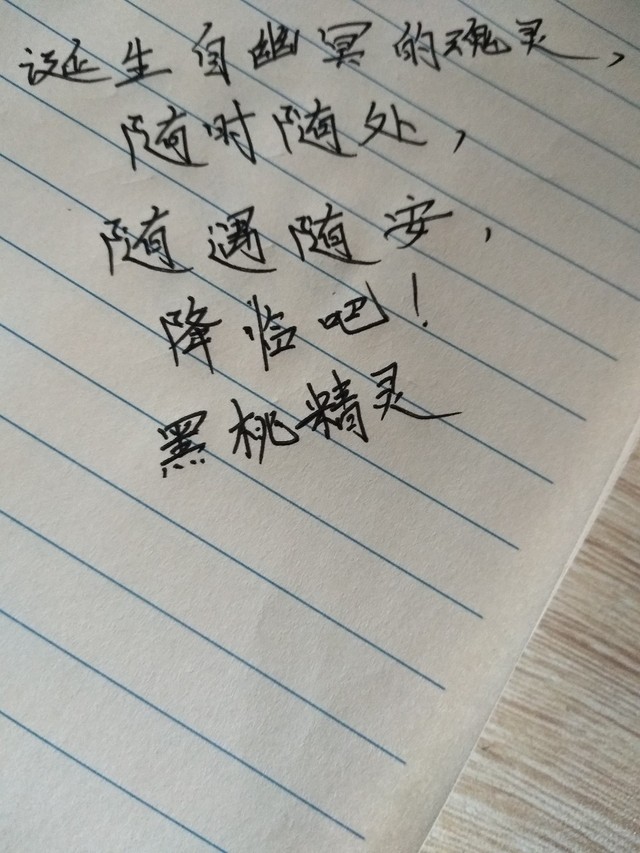 诞生自幽冥的魂灵，
随时随处，
随遇随安，
降临吧！
黑桃精灵